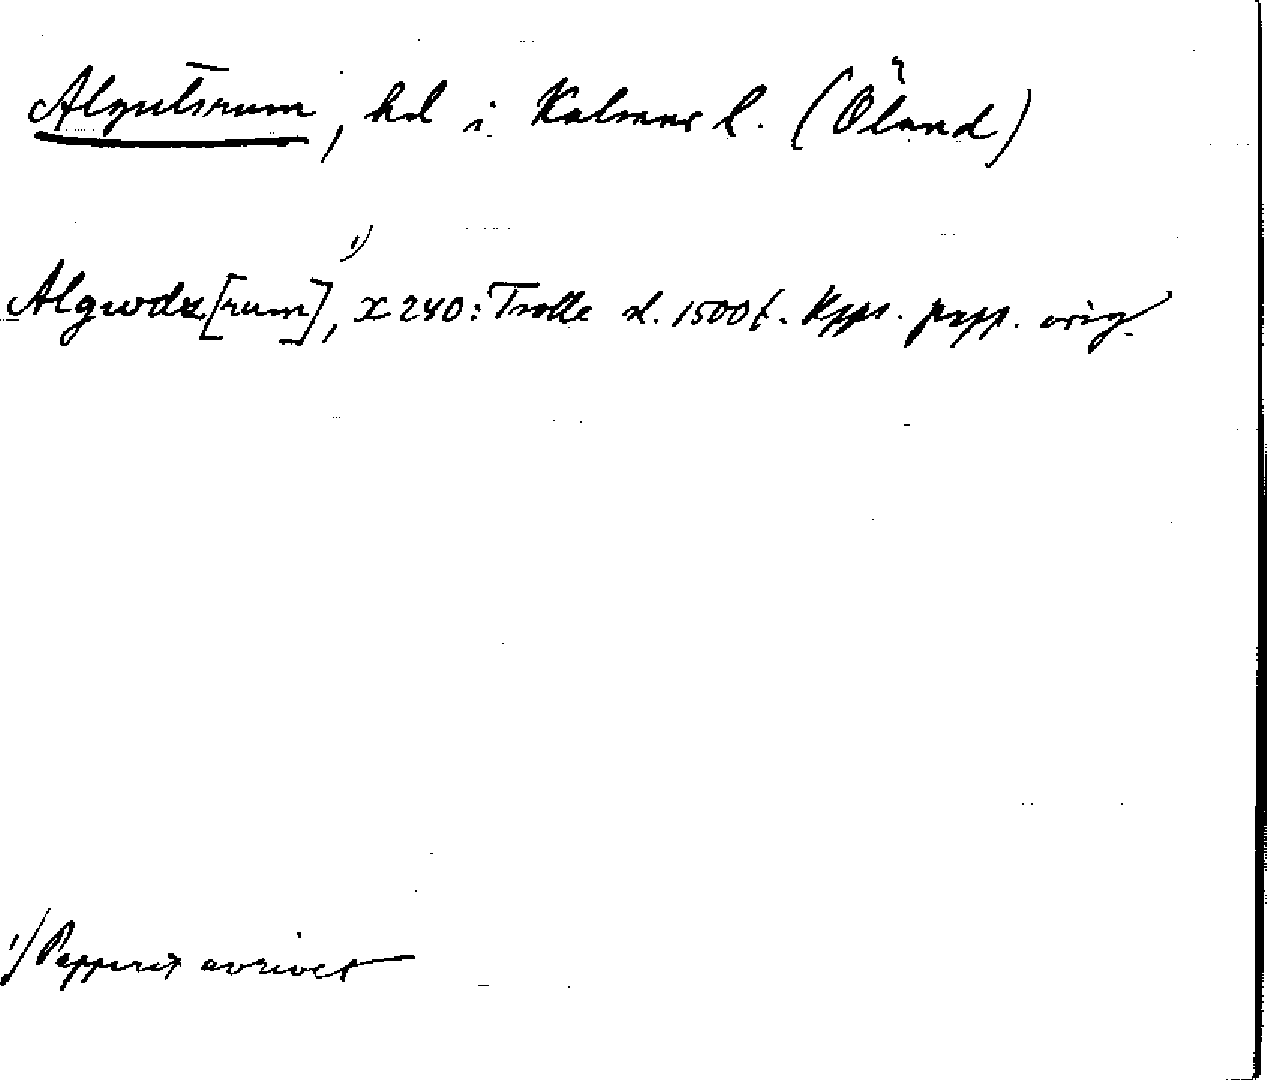 Algutsrum, hd i Kalmar l. (Öland)
Algwdz[rum],¹⁾ X 240: Trolle d. 1500t. Kpps. papp. orig.
¹⁾ Papperet avrivet